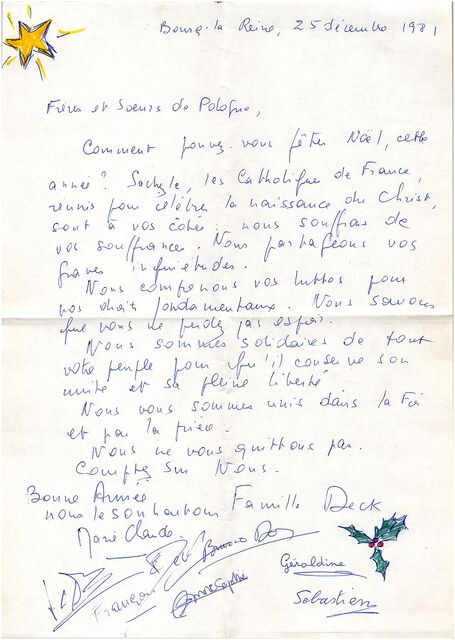 Bourg-la Reine, 25 décembre 1981
Frères et Soeurs de Pologne,
Comment pouvez-vous fêter Noël, cette
année? Sachez le, les Catholiques de France,
réunis pour célébrer la naissance du Christ,
sont à vos côtés. nous souffrons de
vos souffrances. Nous partageons vos
graves inquiétudes.
Nous comprenons vos luttes pour
vos droits fondamentaux. Nous savons
que vous ne perdez pas espoir.
Nous sommes solidaires de tout
votre peuple pour qu'il conserve son
unité et sa pleine liberté
Nous vous sommes unis dans la Foi
et par la prière.
Nous ne vous quittons pas.
Comptez sur Nous.
Bonne Année
nous le souhaitons Famille Deck
Marie Claude
Bruno
François
Anne Sophie
Géraldine
Sébastien